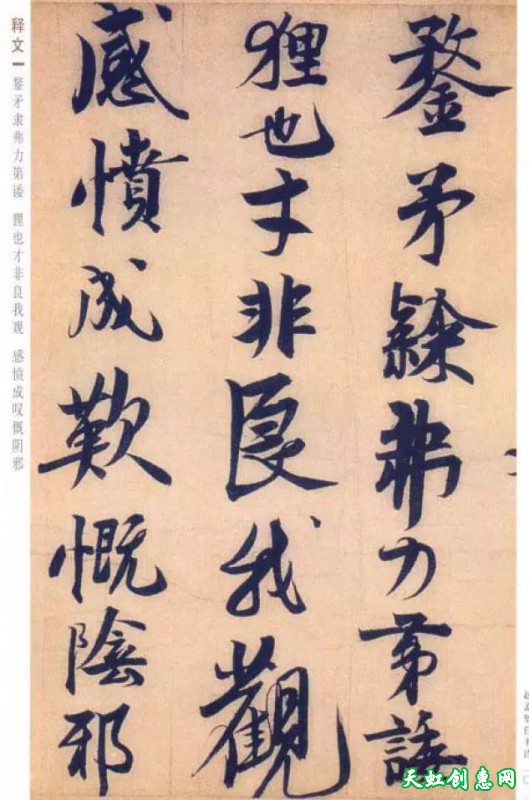 鍪矛隸弗力第諉
狸也才非良我觀
感憤成歎慨陰邪
释文一 鍪矛隶弗力第诿 狸也才非良我观 感愤成叹慨阴邪
天虹创意网